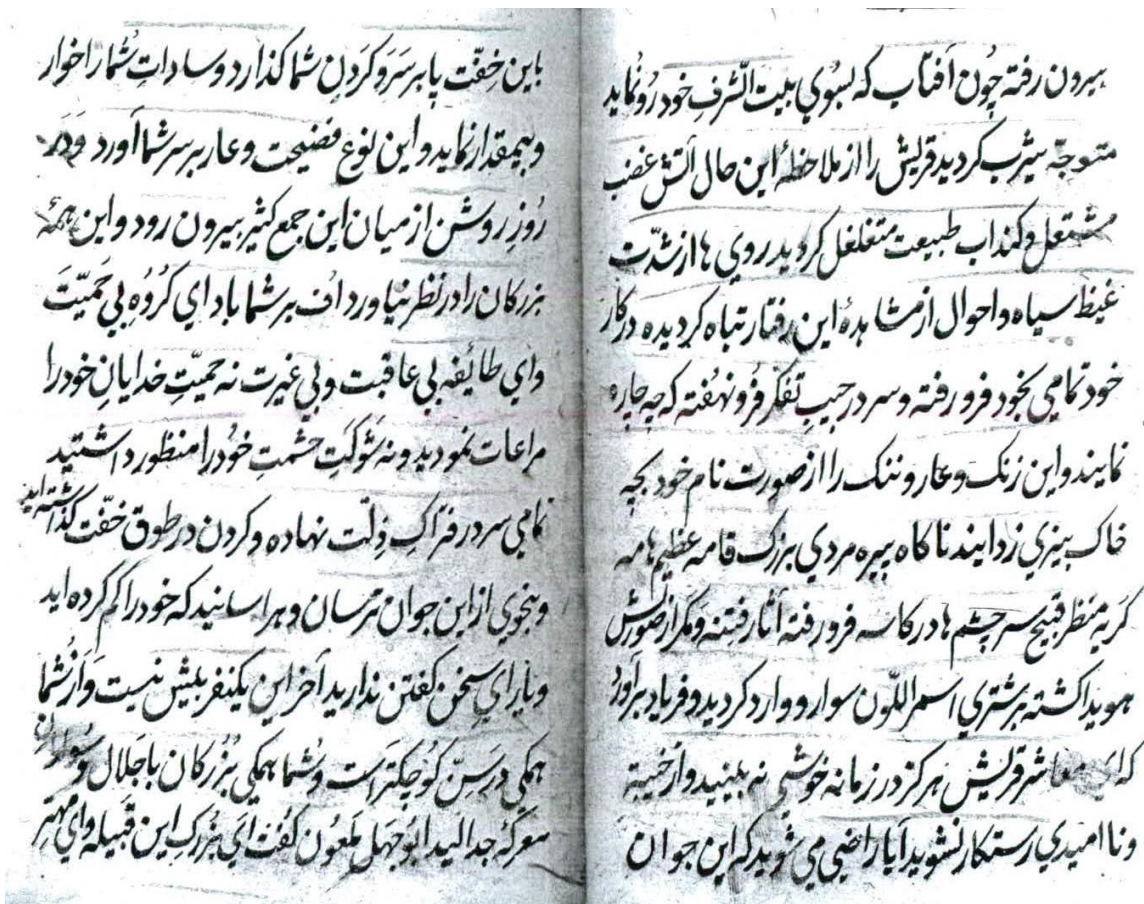 بیرون رفته چون آفتاب که بسوی بیت الشرف خود رو نماید
متوجّه یثرب کردید قریش را از ملاحظهٔ این حال آتش غضب
مشتعل و کنداب طبیعت متغلغل کردید روی ها از شدّت
غیظ سیاه و احوال از مشاهدهٔ این رفتار تباه کردیده در کار
خود تمامی بخود فرو رفته و سر در جیب تفکّر فرو نهفته که چه چاره
نمایند و این زنک و عار و ننک را از صورت نام خود بچه
خاک بیزی زدایند ناکاه پیره مردی بزرک قامه عظیم هامه
کریه منظر قبیح سر چشم ها در کاسه فرو رفته آثار فتنه و مکر از صورتش
هویدا کشته بر شتری اسمر اللّون سوار و وارد کردید و فریاد برآورد
که ای معاشر قریش هرکز در زمانه خوشی نه بینید و از خیبة
و نا امیدی رستکار نشوید آیا راضی می شوید که این جوان
باین خفّت پا بر سَر و کردن شما کذارد و ساداتِ شُما را خوار
و بیمقدار نماید و این نوع فضیحت و عار بر سر شما آورد وَ در
رُوزِ روشن از میان این جمع کثیر بیرون رود و این همهٔ
بزرکان را در نظر نیاورد اُف بر شما باد ای کُروُه بی حَمیّت
وای طائفه بی عاقبت و بی غیرت نه حمیّتِ خدایانِ خود را
مراعات نمودید و نه شوکتِ حشمتِ خُود را منظور داشتید
تمامی سر در فتراکِ ذِلّت نهاده و کردن در طوق خفّت کذاشته اید
و بنحوی از این جوان ترسان و هراسانید که خود را کم کرده اید
و یارایِ سخن کفتن ندارید آخر این یکنفر بیش نیست وَ از شُما
همکی در سِنّ کوُچکتر است و شُما همکی بُزُرکان با جَلال و سواران
معرکهٔ جدالید ابوُ جهل مَلعوُن کفت ای بزرکِ این قبیله و ای مهتر